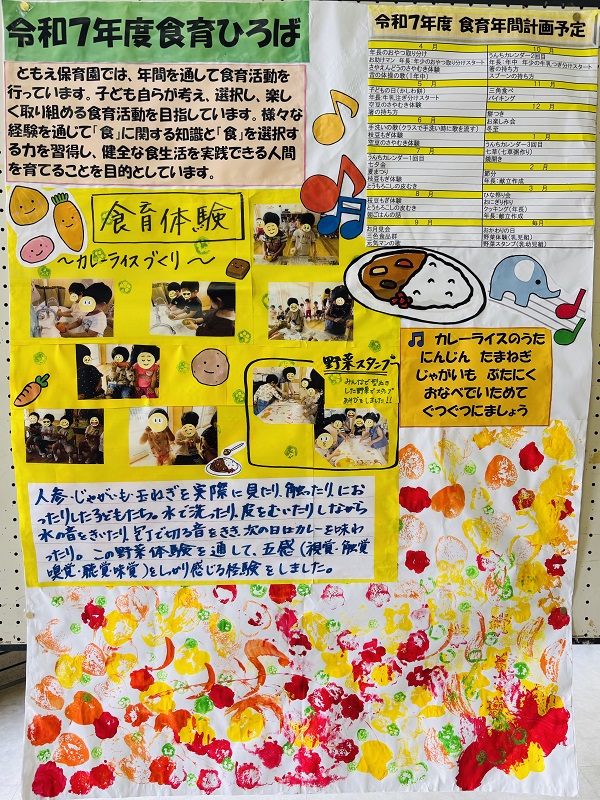 令和7年度食育ひろば
ともえ保育園では、年間を通して食育活動を
行っています。子ども自らが考え、選択し、楽し
く取り組める食育活動を目指しています。様々な
経験を通して「食」に関する知識と「食」を選択す
る力を習得し、健全な食生活を実践できる人間
を育てることを目的としています。
令和7年度 食育年間計画予定
4月
年長のおやつ取り分け
お助けマン 年長 年少のおやつ取り分けスタート
さやえんどうのさやむき体験
舌の体操の歌(1年中)
5月
子どもの日(かしわ餅)
年長:牛乳注ぎ分けスタート
空豆のさやむき体験
箸の持ち方
6月
手洗いの歌(クラスで手洗い時に歌を流す)
枝豆もぎ体験
空豆のさやむき体験
7月
うんちカレンダー1回目
七夕会
夏まつり
枝豆もぎ体験
とうもろこしの皮むき
8月
枝豆もぎ体験
とうもろこしの皮むき
朝ごはんの話
9月
お月見会
三色食品群
元気マンの歌
10月
うんちカレンダー2回目
年長:年中 年少の牛乳つぎ分けスタート
箸の持ち方
スプーンの持ち方
11月
三角食べ
バイキング
12月
餅つき
お楽しみ会
冬至
1月
うんちカレンダー3回目
七草(七草粥作り)
鏡開き
2月
節分
年長:献立作成
3月
ひな祭り会
おにぎり作り
クッキング(年長)
年長:献立作成
毎月
おかわりの日
野菜体験(乳児組)
野菜スタンプ(乳幼児組)
食育体験
～カレーライスづくり～
野菜スタンプ
みんなで型ぬき
した野菜でスタンプ
あそびをしました!!
カレーライスのうた
にんじん たまねぎ
じゃがいも ぶたにく
おなべでいためて
ぐつぐつにましょう
人参・じゃがいも・玉ねぎを実際に見たり、触ったり、にお
ったりした子どもたち。水で洗ったり、皮をむいたりしながら
水の音をきいたり、包丁で切る音をきき、次の日はカレーを味わ
ったり。この野菜体験を通して、五感(視覚・触覚
嗅覚・聴覚・味覚)をしっかり感じる経験をしました。